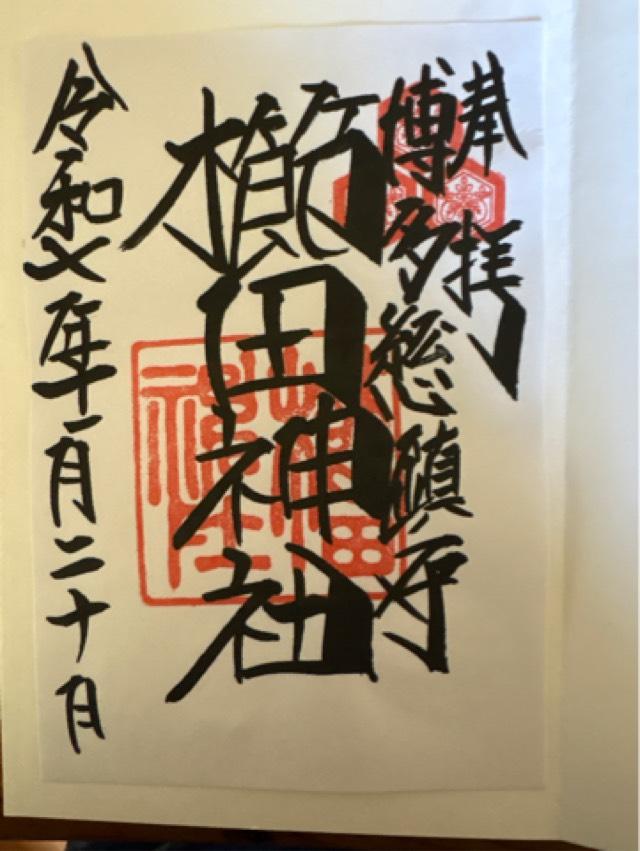 奉拝
博多総鎮守
櫛田神社
令和七年一月二十日
櫛田神社